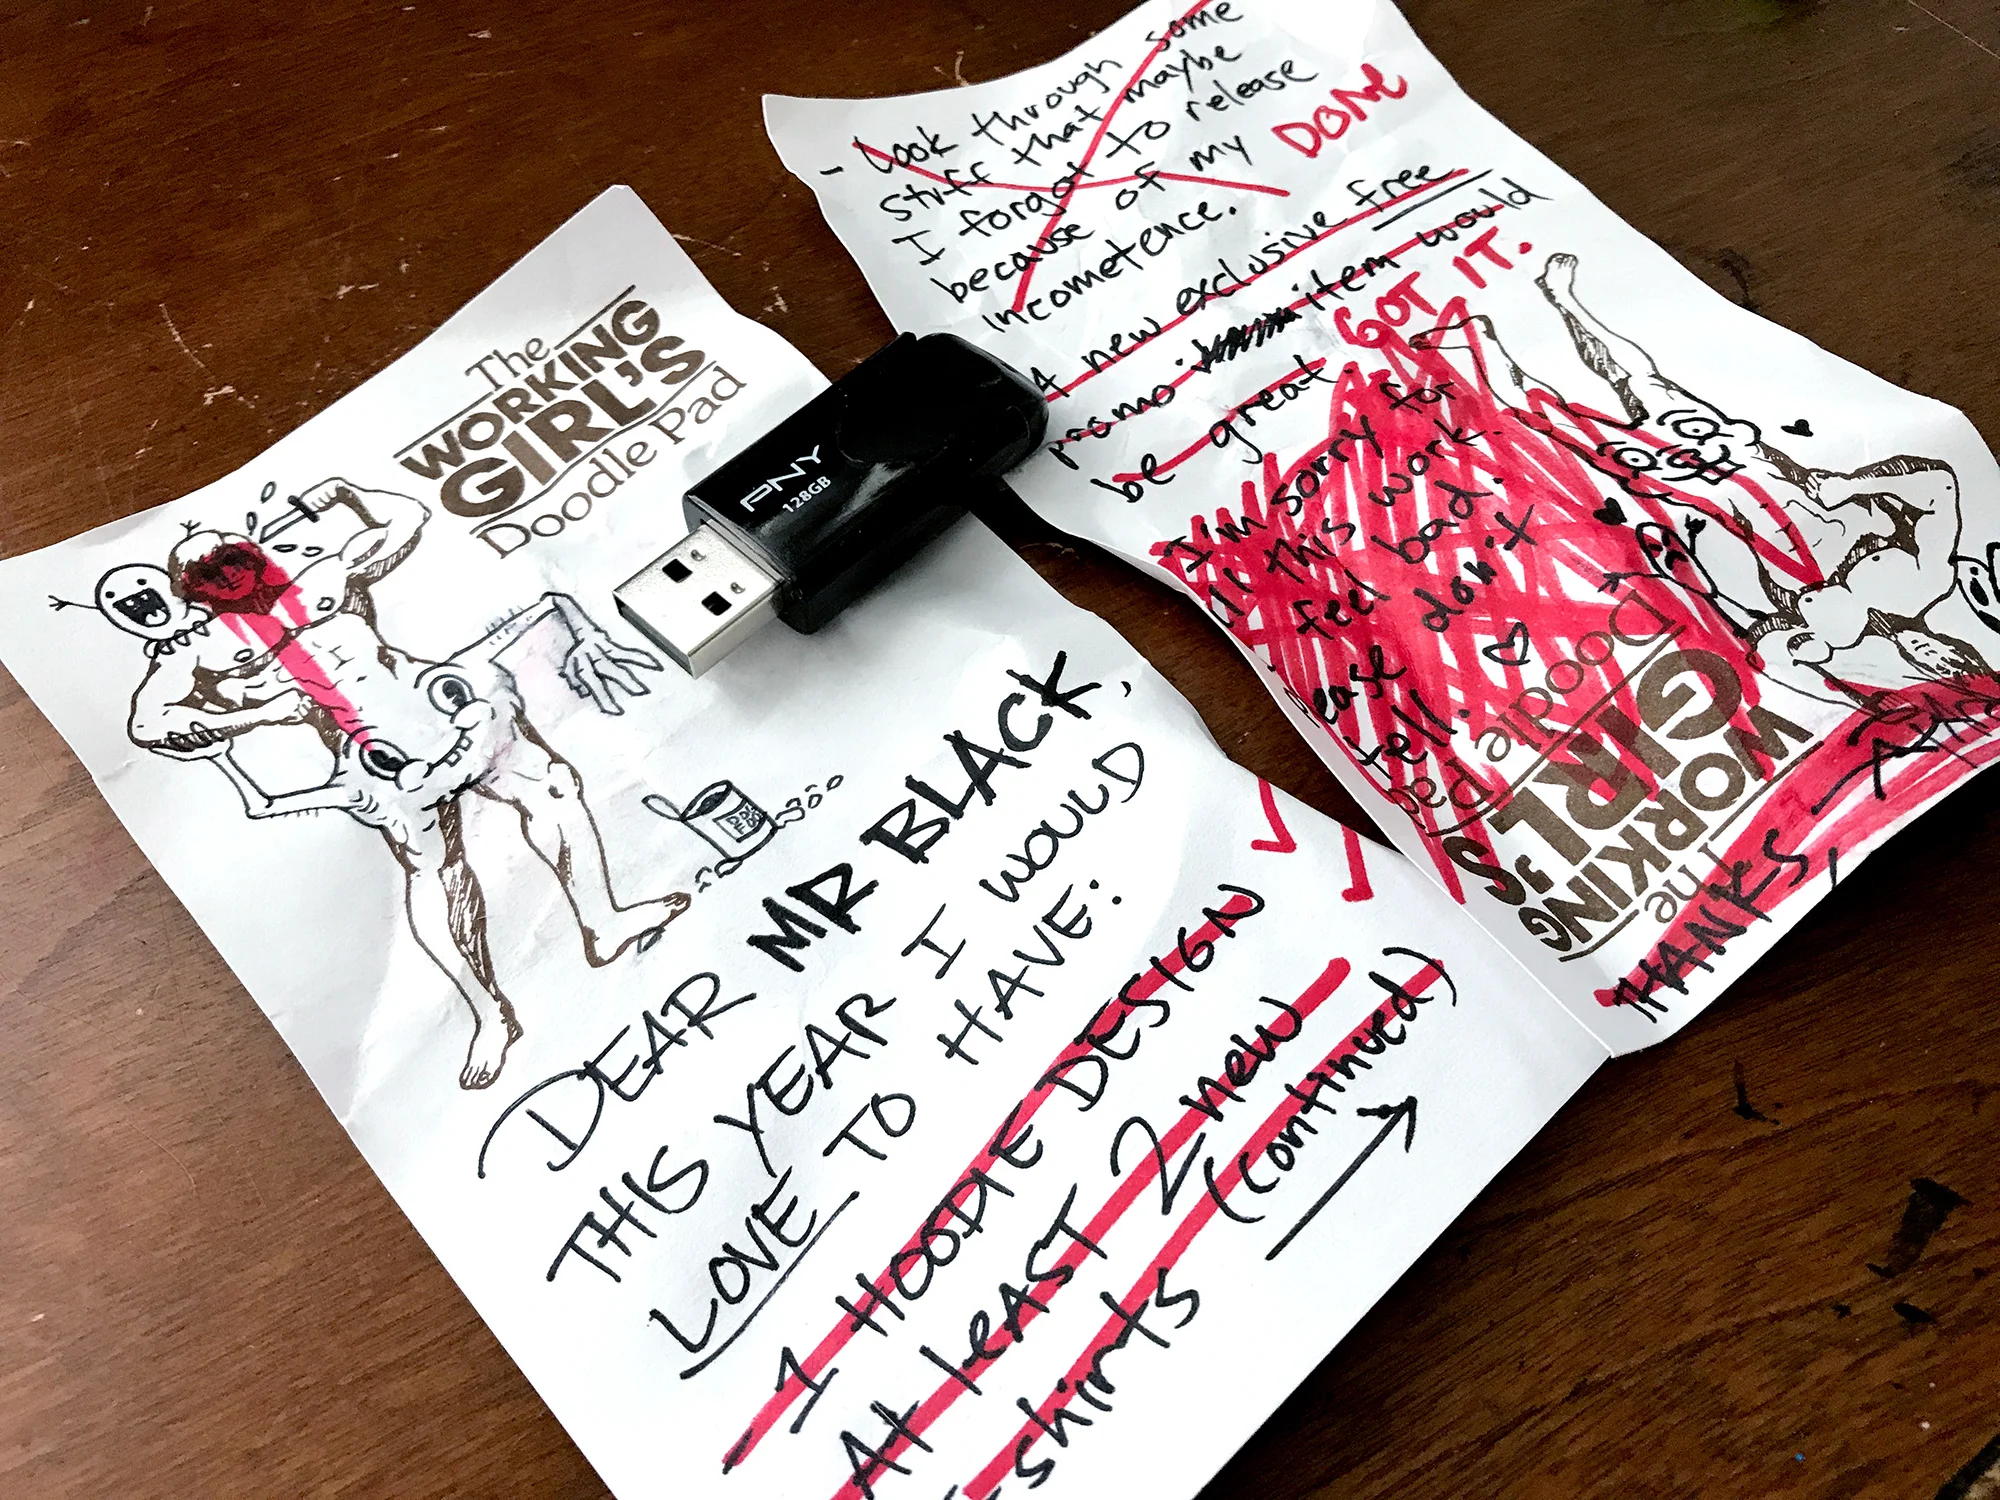 The
WORKING
GIRL'S
Doodle Pad
DOG
FOOD
DEAR MR BLACK,
THIS YEAR I WOULD
LOVE TO HAVE:
- 1 HOODIE DESIGN
At leAST 2 new
T-shirts (continued)
PNY
128GB
- Look through some
stuff that maybe
I forgot to release
because of my
incometence.
DONe
A new exclusive free
promo item would
be great.
GOT IT.
I'm sorry for
all this work.
feel bad.
ease don't
tell.
The
WORKING
GIRL'S
Doodle Pad
THANKS,